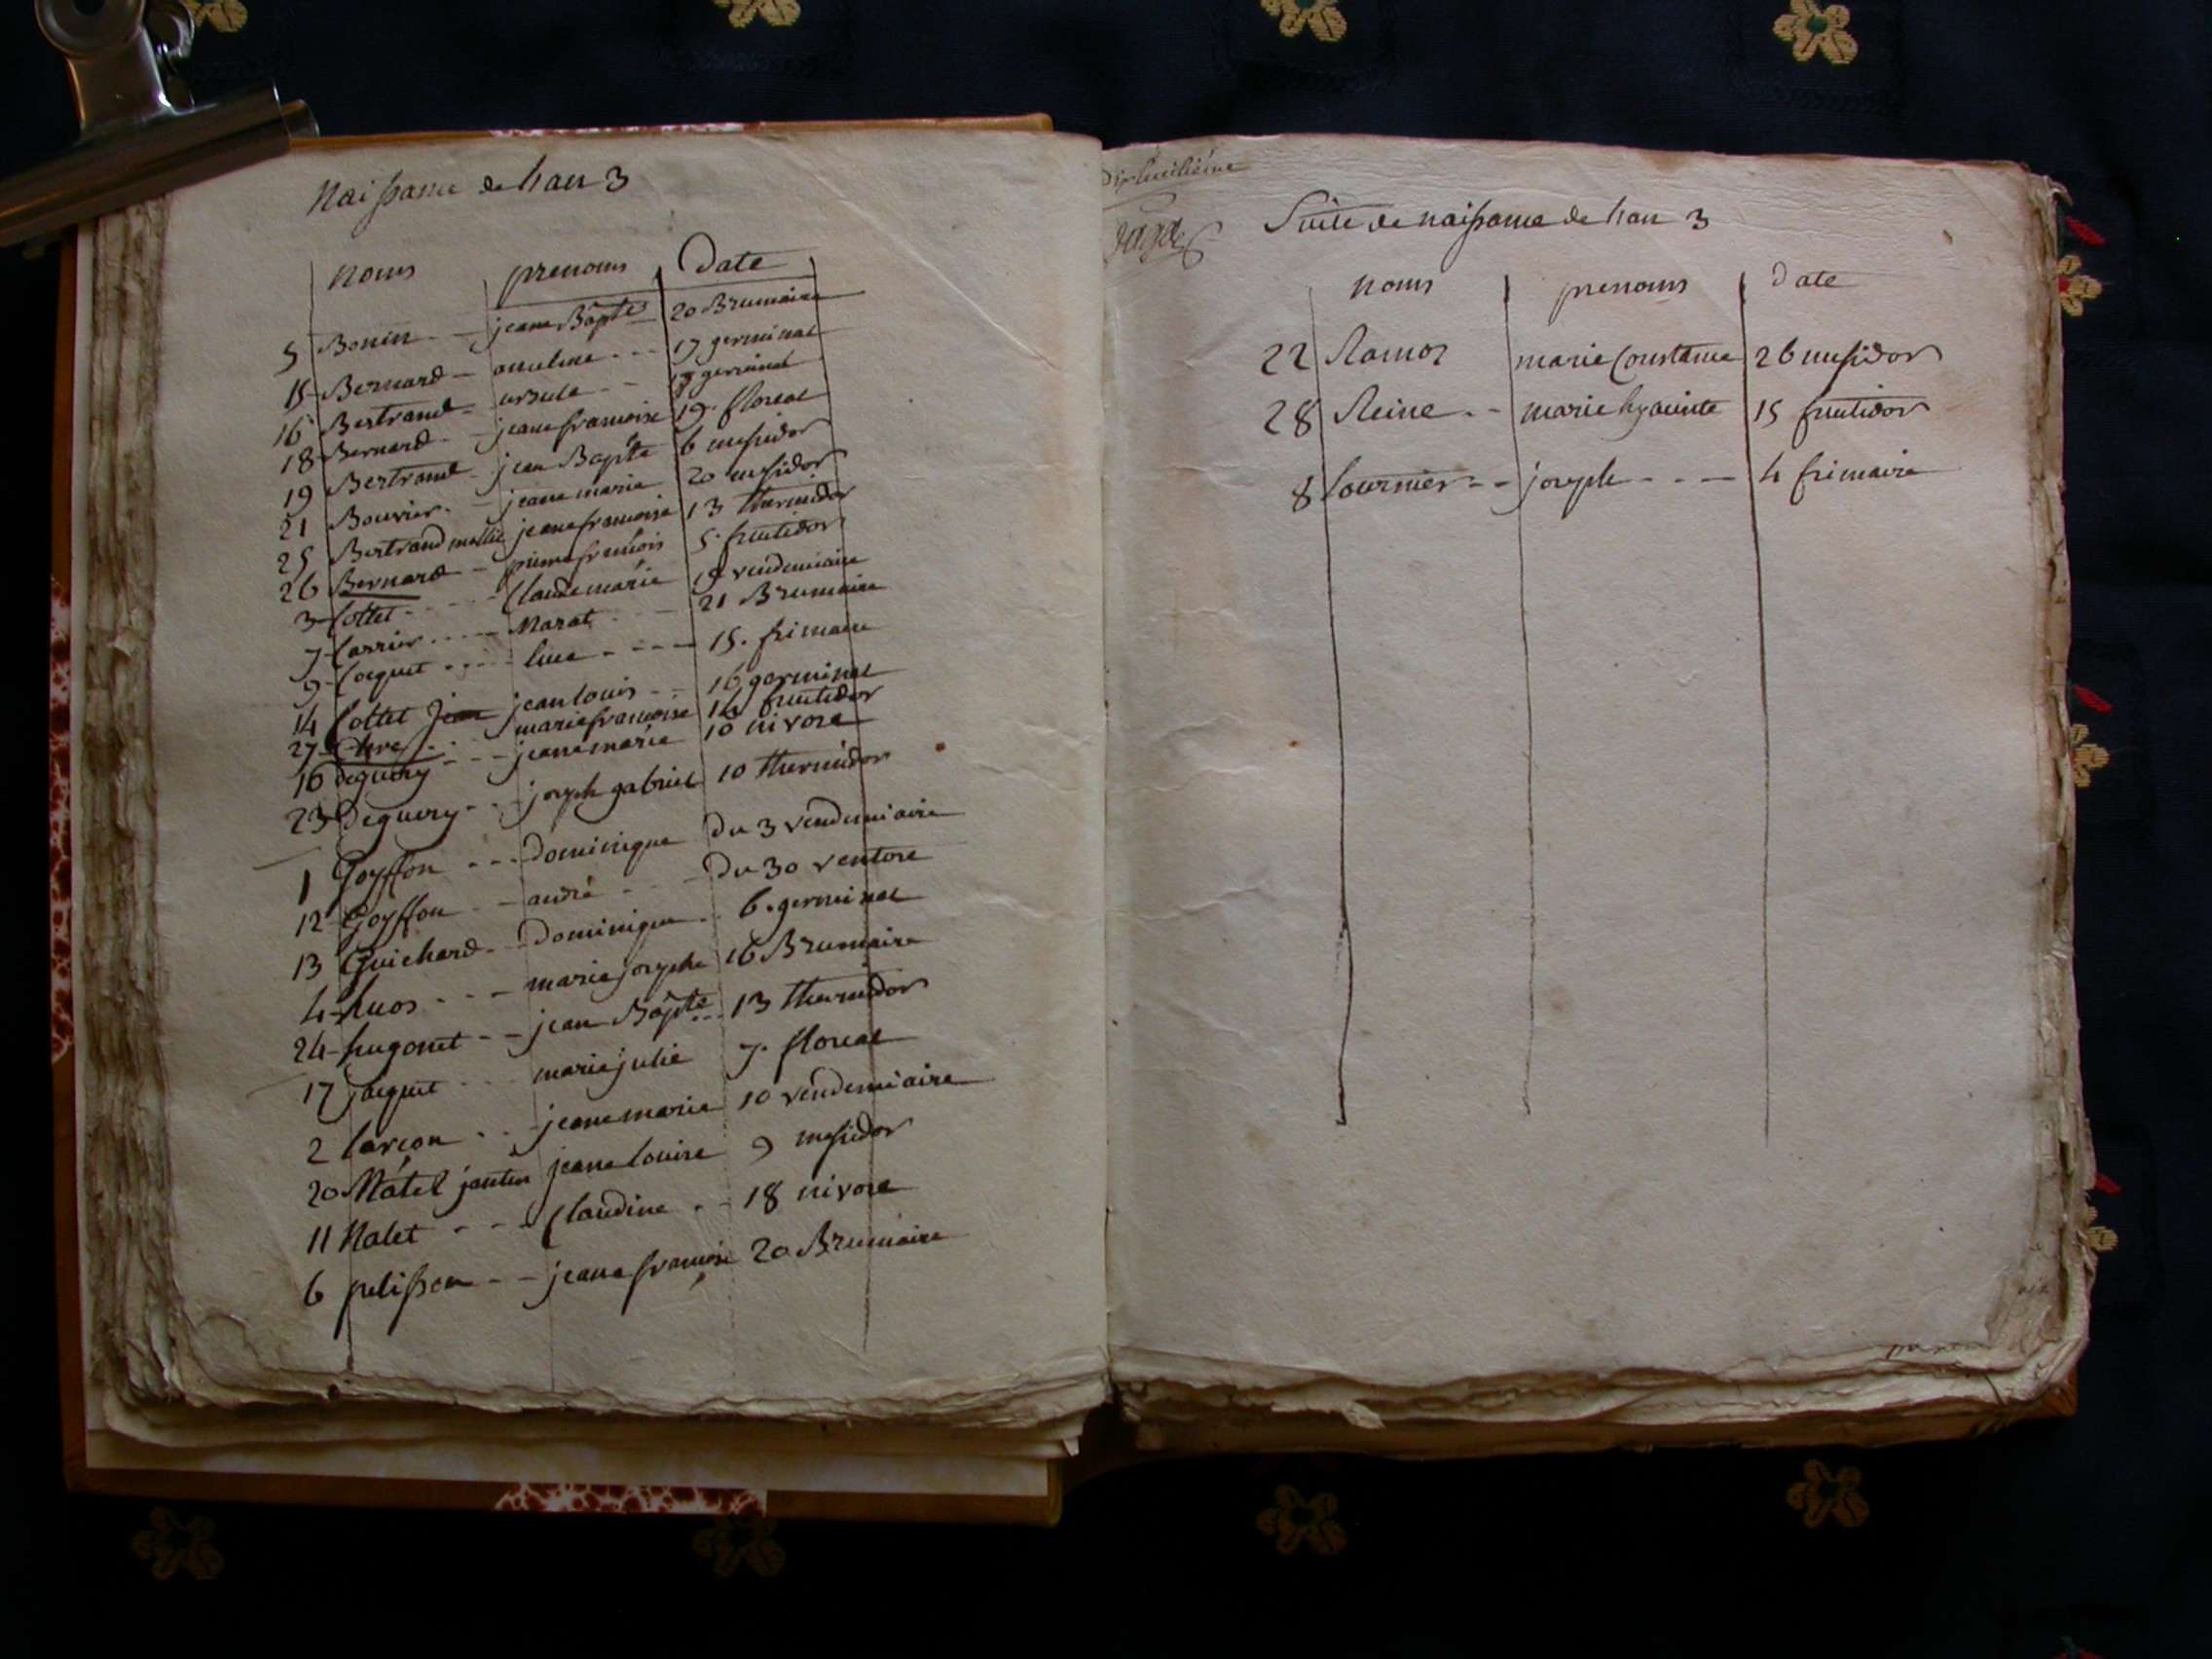 Naissance de l'an 3
noms prenoms Date
5 Bonin jeane Bapte 20 Brumaire
15 Bernard anselme 17 germinal
16 Bertrand ursule germinal
18 Bernard jeane francoise 19 floreal
19 Bertrand jean Bapte 6 messidor
21 Bouvier jeane marie 20 messidor
25 Bertrand jeane francoise 13 thermidor
26 Bernard pierre francois 5 fructidor
3 Cottet Claude marie 19 vendemiaire
7 Carrier Marat 21 Brumaire
9 Cocquet 15 frimaire
14 Cottet Jean jean louis 16 germinal
27 marie francoise 14 fructidor
10 Deguery jeane marie 10 nivose
23 Deguery joseph gabriel 10 thermidor
1 Goyffon Dominique Du 3 vendemiaire
12 Goyffon andré Du 30 ventose
13 Guichard Dominique 6 germinal
4 huos marie josephe 16 Brumaire
24 hugonet jean Bapte 13 thermidor
17 jacquet marie julie 7 floreal
2 larçon jeane marie 10 vendemiaire
20 Matel jantin jeane louise 9 messidor
11 Nalet Claudine 18 nivose
6 pelisson jeane francoise 20 Brumaire
Dixhuitième
page
Suite de naissance de l'an 3
noms prenoms Date
22 Ramoz marie Constance 26 messidor
28 Reine marie hyacinte 15 fructidor
8 fournier joseph 4 frimaire